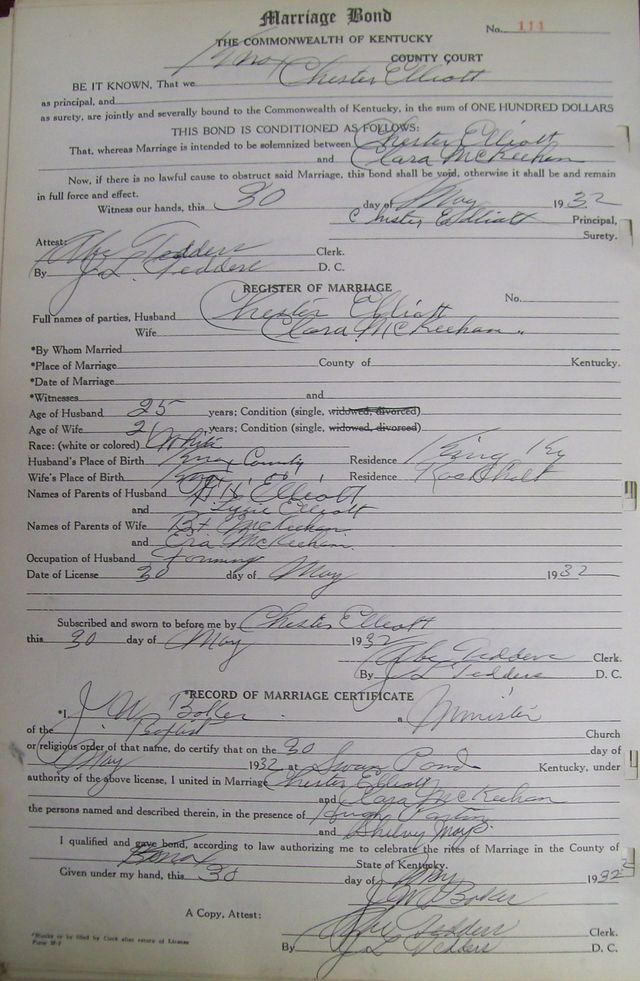 Marriage Bond
No. 111
THE COMMONWEALTH OF KENTUCKY
Knox COUNTY COURT
BE IT KNOWN, That we Chester Elliott
as principal, and
as surety, are jointly and severally bound to the Commonwealth of Kentucky, in the sum of ONE HUNDRED DOLLARS
THIS BOND IS CONDITIONED AS FOLLOWS:
That, whereas Marriage is intended to be solemnized between Chester Elliott
and Clara McKeehan
Now, if there is no lawful cause to obstruct said Marriage, this bond shall be void, otherwise it shall be and remain
in full force and effect.
Witness our hands, this 30 day of May 1932
Chester Elliott Principal,
Surety.
Attest:
Abe Tedders Clerk.
By J. L. Tedders D. C.
REGISTER OF MARRIAGE
No.
Full names of parties, Husband Chester Elliott
Wife Clara McKeehan
*By Whom Married
*Place of Marriage County of Kentucky.
*Date of Marriage
*Witnesses and
Age of Husband 25 years; Condition (single, widowed, divorced)
Age of Wife 21 years; Condition (single, widowed, divorced)
Race: (white or colored) White
Husband's Place of Birth Knox County Residence King Ky
Wife's Place of Birth Knox Residence
Names of Parents of Husband Elliott
and Lizzie Elliott
Names of Parents of Wife McKeehan
and McKeehan
Occupation of Husband Farming
Date of License 30 day of May 1932
Subscribed and sworn to before me by Chester Elliott
this 30 day of May 1932
Abe Tedders Clerk.
By J L Tedders D. C.
*RECORD OF MARRIAGE CERTIFICATE
*I, J W a Minister
of the Baptist Church
or religious order of that name, do certify that on the 30 day of
May 1932 at Swan Pond Kentucky, under
authority of the above license, I united in Marriage Chester Elliott
and Clara McKeehan
the persons named and described therein, in the presence of Hugh Partin
and Mays
I qualified and gave bond, according to law authorizing me to celebrate the rites of Marriage in the County of
Knox State of Kentucky.
Given under my hand, this 30 day of May 1932
J W
A Copy, Attest: Abe Tedders Clerk.
By J L Tedders D. C.
*Blanks to be filled by Clerk after return of License